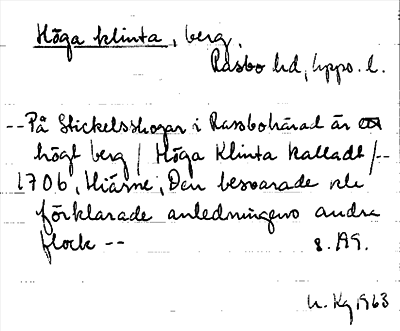 Höga klinta, berg,
Rasbo hd, Upps. l.
-- På Stickelsskogar i Rassbohärad är ett
högt berg / Höga Klinta kalladt / --
1706, Hiärne, Den besvarade och
förklarade anledningens andra
flock -- s. 189.
1963